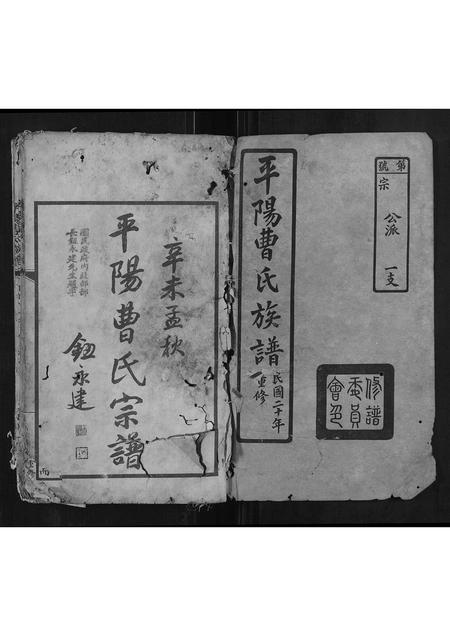 第 號
宗
公派
一支
平陽曹氏族譜
民國二十年
重修
修譜
委員
會印
辛未孟秋
平陽曹氏宗譜
國民政府內政部部
長鈕永建先生題字
鈕永建